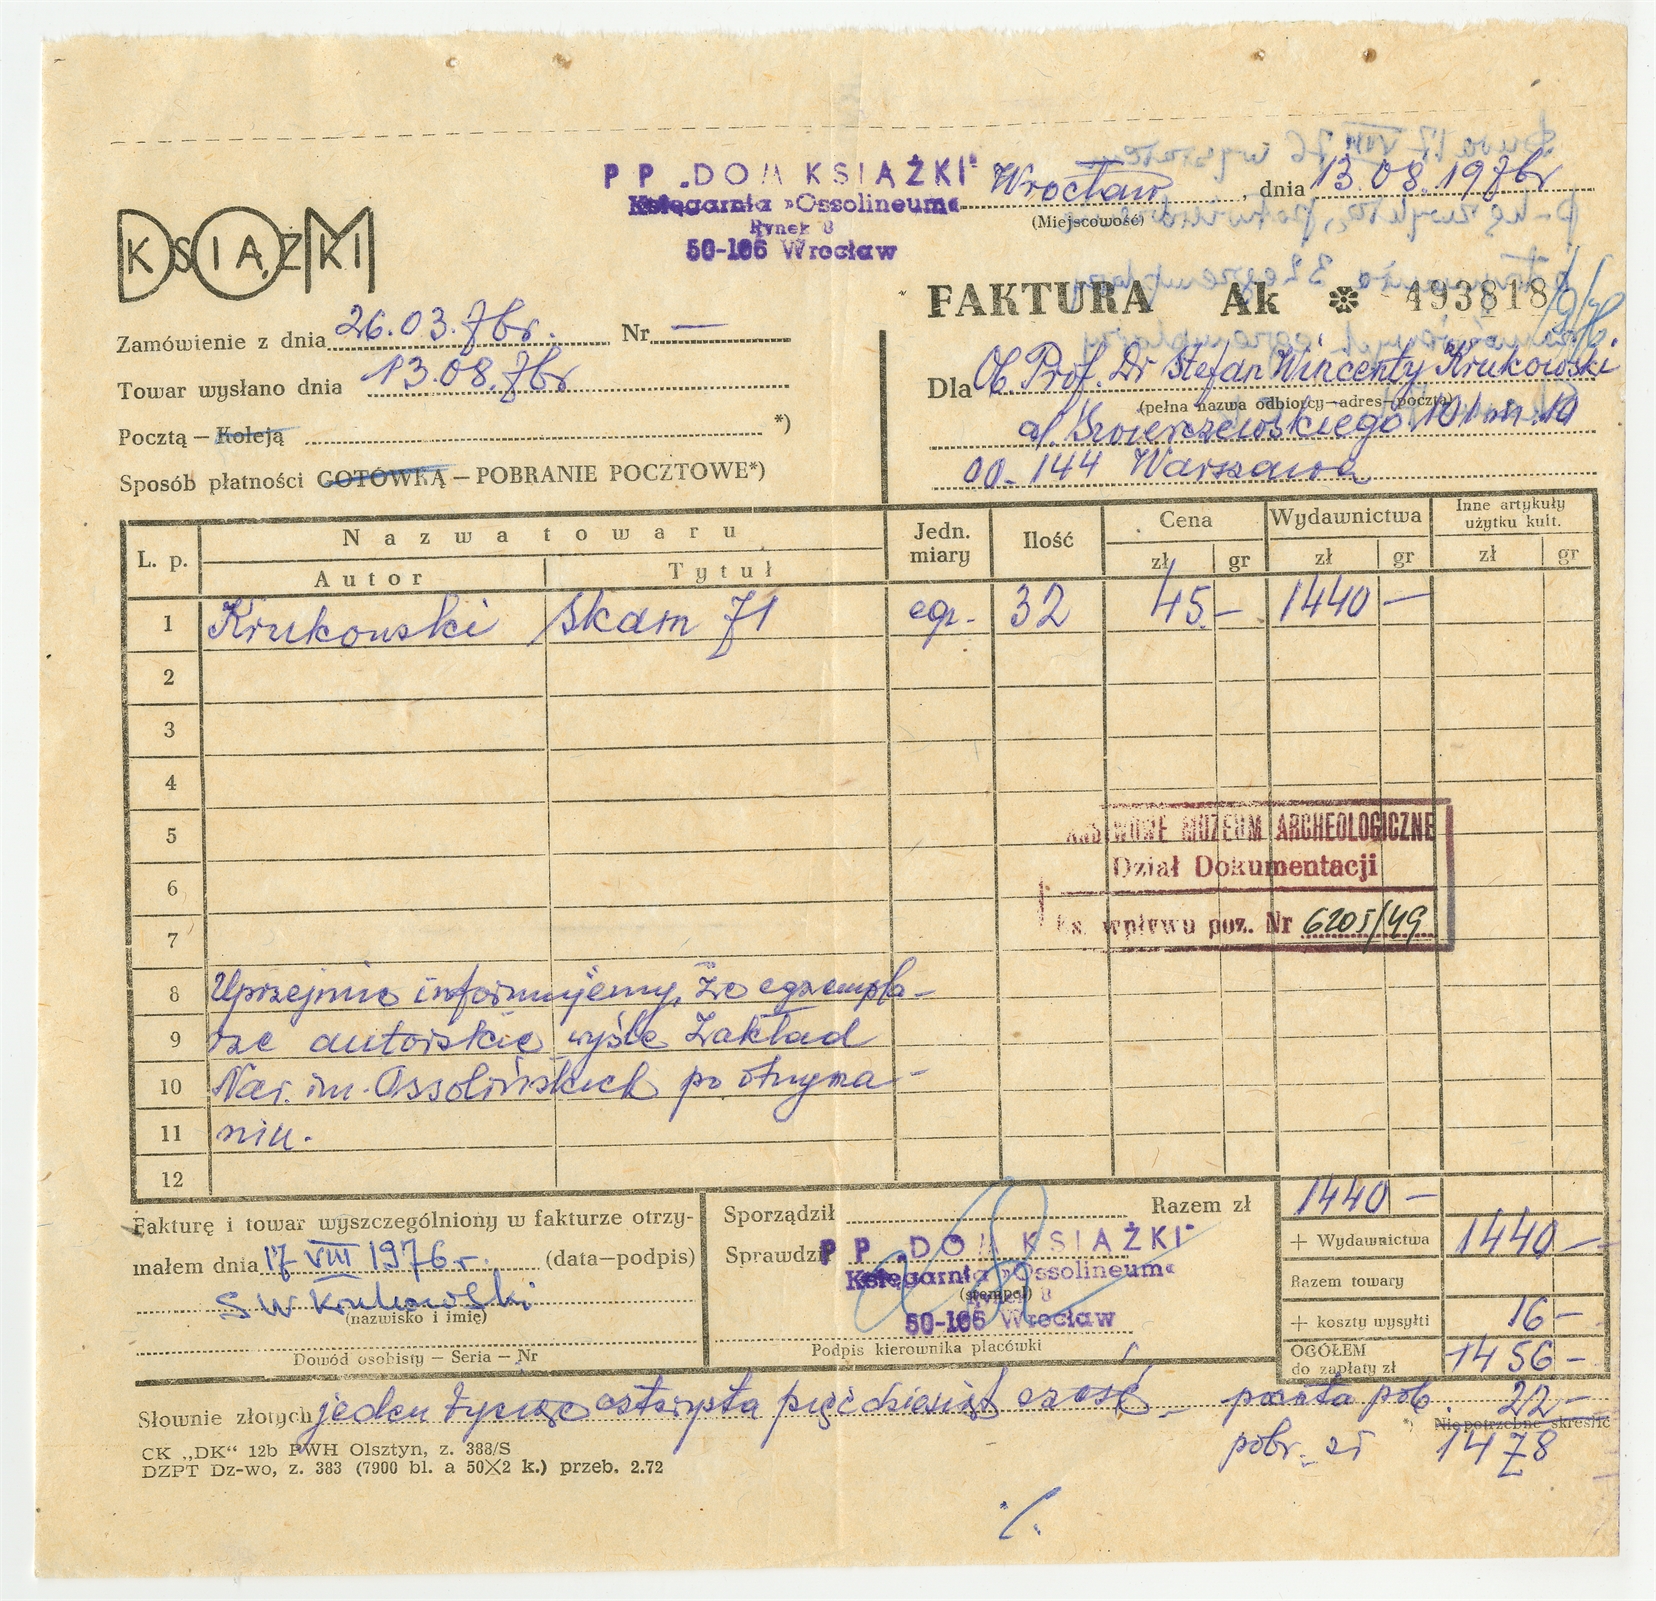 P P „DOM KSIĄŻKI"
Księgarnia »Ossolineum«
Rynek 8
50-106 Wrocław
Wrocław, dnia 13.08.1976r
(Miejscowość)
DOM KSIĄŻKI
FAKTURA Ak ✽ 493818
Zamówienie z dnia 26.03.76r. Nr —
Towar wysłano dnia 13.08.76r
Pocztą — Koleją *)
Sposób płatności GOTÓWKĄ — POBRANIE POCZTOWE*)
Dla Ob. Prof. Dr Stefan Wincenty Krukowski
(pełna nazwa odbiorcy—adres—poczta)
al. Świerczewskiego 101 m. 10
00-144 Warszawa
L. p. Nazwa towaru Jedn. miary Ilość Cena Wydawnictwa Inne artykuły użytku kult.
Autor Tytuł zł gr zł gr zł gr
1 Krukowski Skam 71 egz. 32 45 — 1440 —
2
3
4
5
6
7
PAŃSTWOWE MUZEUM ARCHEOLOGICZNE
Dział Dokumentacji
Ks. wpływu poz. Nr 6205/49
8 Uprzejmie informujemy, że egzempla-
9 rze autorskie wyśle Zakład
10 Nar. im. Ossolińskich po otrzyma-
11 niu.
12
Fakturę i towar wyszczególniony w fakturze otrzy-
małem dnia 17 VIII 1976 r. (data—podpis)
S W Krukowski
(nazwisko i imię)
Dowód osobisty — Seria — Nr
Sporządził
Sprawdził
P P „DOM KSIĄŻKI"
Księgarnia »Ossolineum«
(stempel)
Rynek 8
50-106 Wrocław
Podpis kierownika placówki
Razem zł 1440 —
+ Wydawnictwa 1440 —
Razem towary
+ koszty wysyłki 16 —
OGÓŁEM
do zapłaty zł 1456 —
Słownie złotych jeden tysiąc czterysta pięćdziesiąt sześć — poczta pob. 22 —
Niepotrzebne skreślić
pobr. zł 1478
CK „DK" 12b PWH Olsztyn, z. 388/S
DZPT Dz-wo, z. 383 (7900 bl. a 50X2 k.) przeb. 2.72